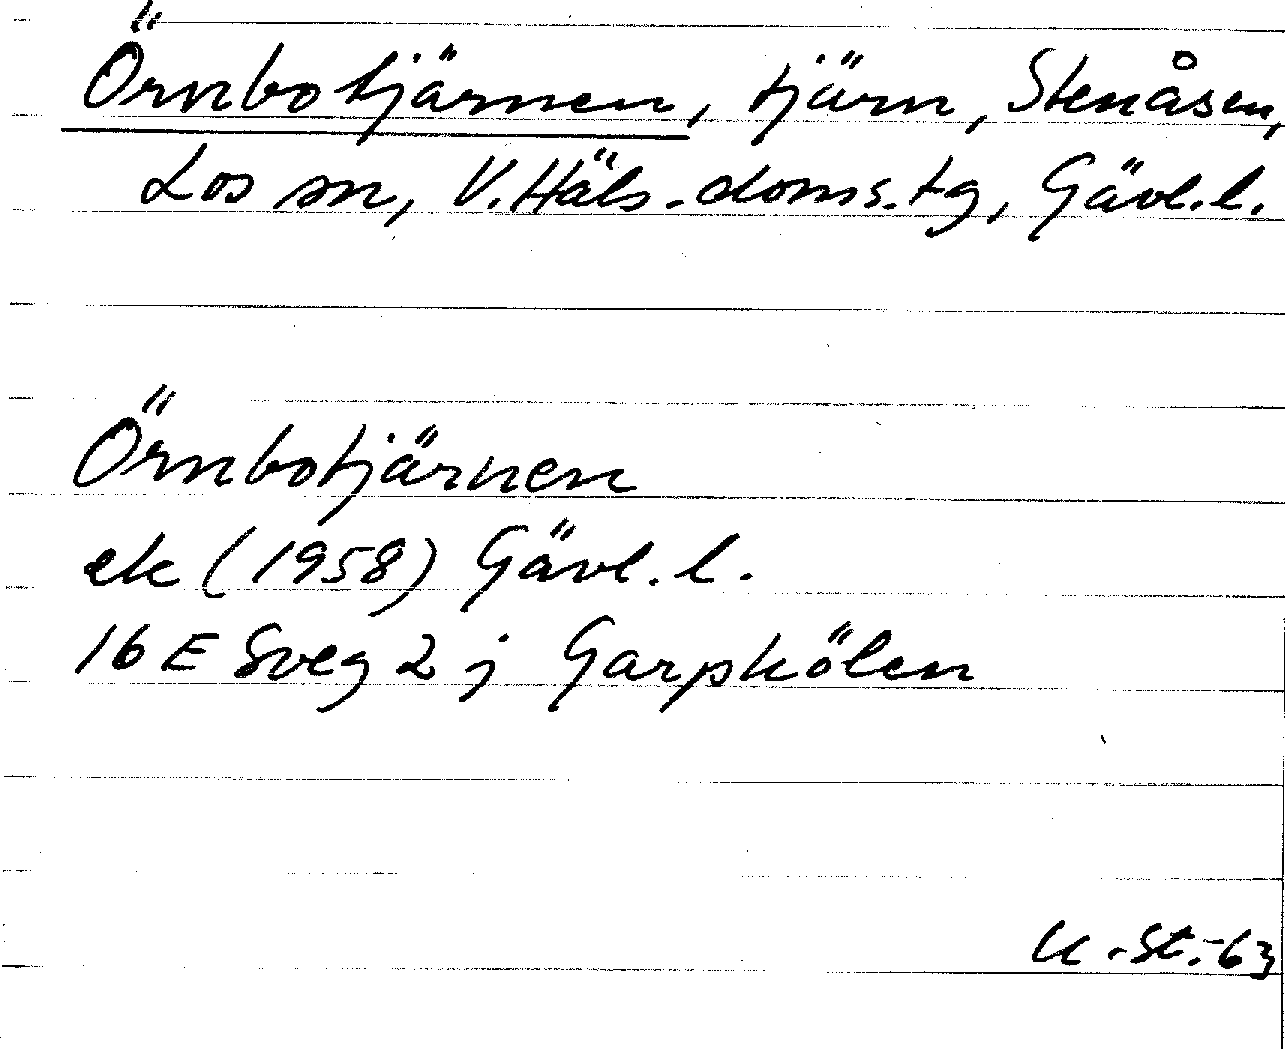 Örnbotjärnen, tjärn, Stenåsen,
Los sn, V. Häls. doms. tg, Gävl. l.
Örnbotjärnen
ek (1958) Gävl. l.
16 E Sveg 2 j Garpkölen
U. St. -63